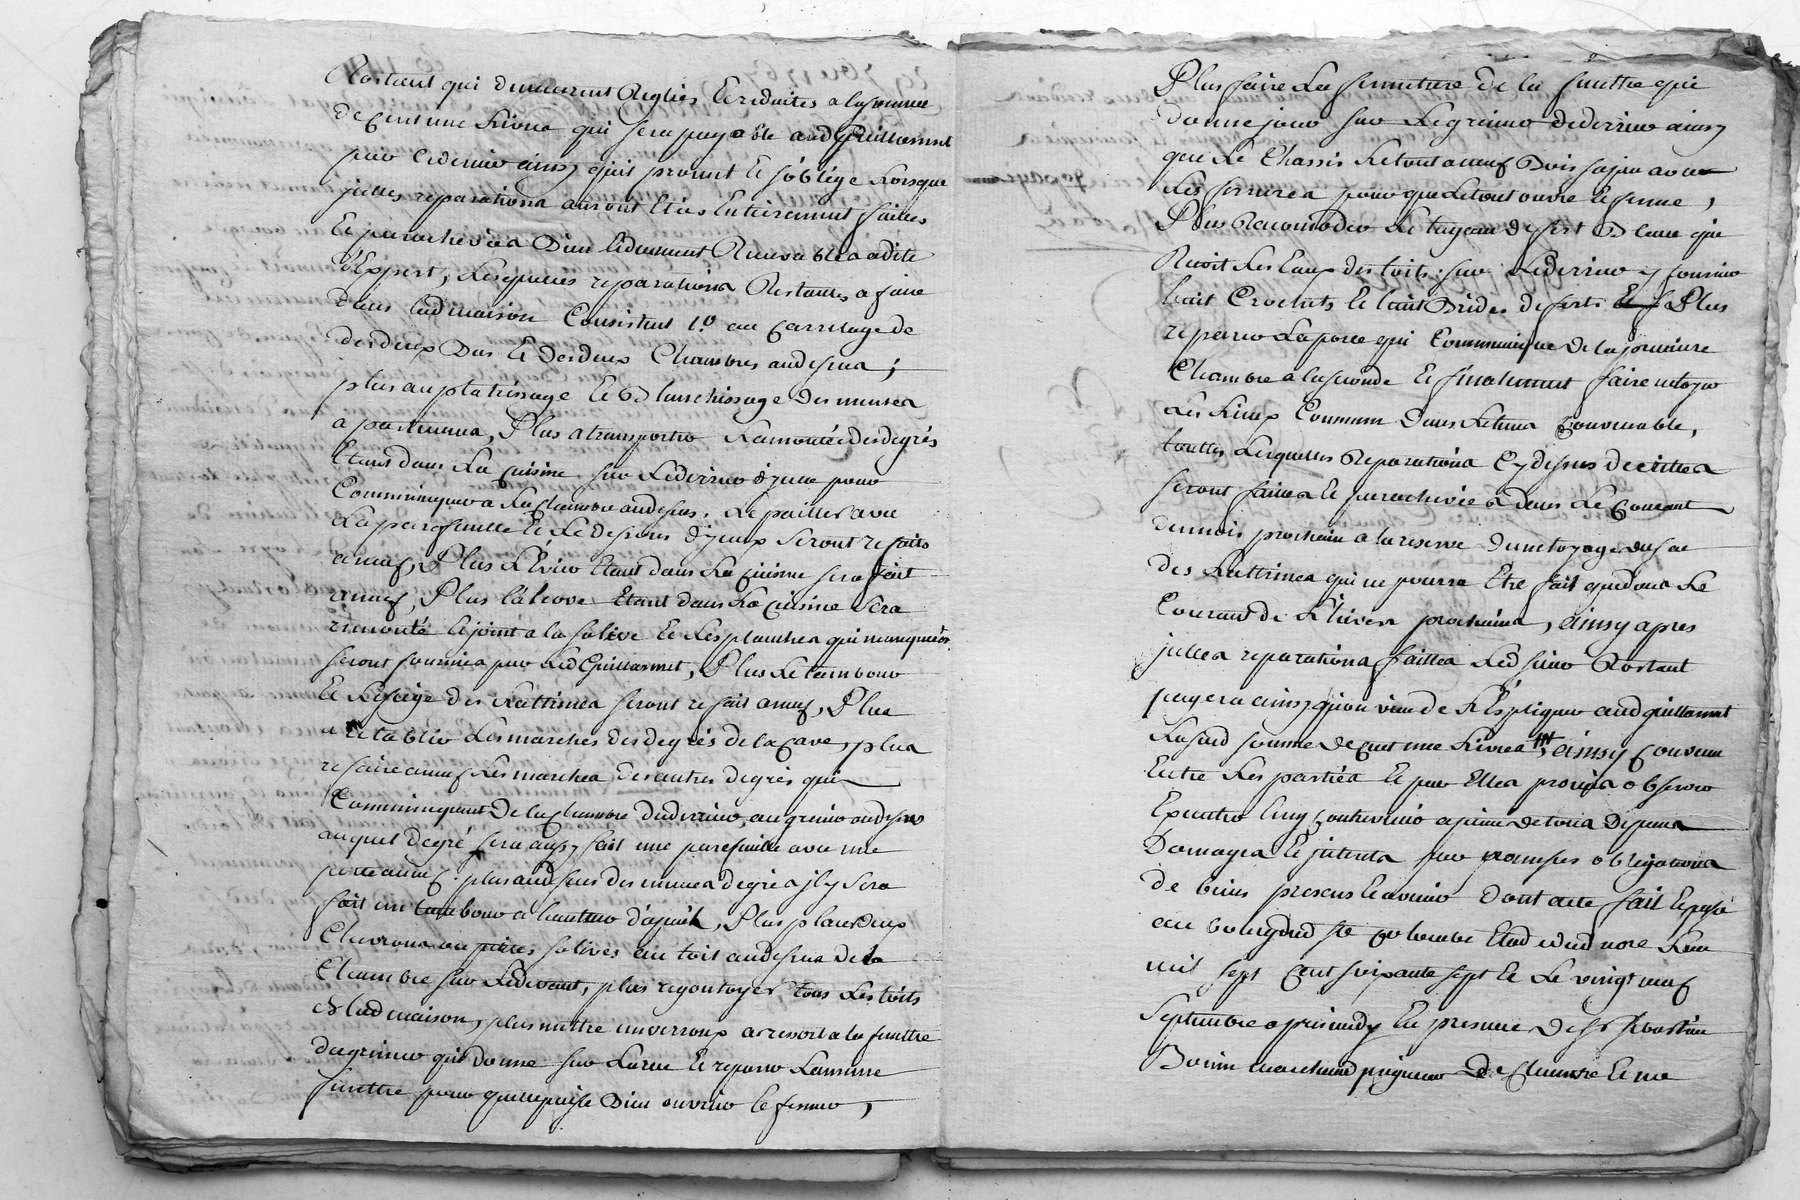 Rostant qui demeurent Reglées Et reduites a la somme
de cent une Livre qui sera payable aud Guillermet
par ce dernier ainsy qu'il promet Et s'oblige Lorsque
jcelles reparations auront Etées Entierement faittes
Et parachevées Bien & duement Recevables a dite
d'Expert, Lesquelles reparations Restantes a faire
dans lad maison Consistent 1.o au Carrelage de
des deux Bas Et des deux Chambres audessus;
plus au platrissage Et Blanchissage des murea
a pa Plus a transporter La montée des degrés
Etant dans La cuisine sur Le derrier d'jceux pour
Communiquer a La Chambre audessus. Le pailler avec
La parefeuille Et Le dessous d'jceux seront refaits
a neuf, Plus L'Evier Etant dans La cuisine sera fait
a neuf, Plus l'alcove Etant dans La Cuisine sera
remonté Et joint a la solive Et Les planches qui manqueront
seront fournies par Led Guillermet, Plus Le tambour
Et Le siege des Lattrines seront refait a neuf, Plus
a retablir Les marches des degrés de la Cave, plus
refaire a neuf Les marches des autres degrés qui
Communiquent de la Chambre du derrier, au grenier audessus
auquel degré sera aussy fait une parefeuille avec une
porte a neuf. plus audessus des mêmes degrés jl y sera
fait un tambour a hauteur d'apuit, Plus placer deux
Chevrons ou petites solives au toit audessus de la
Chambre sur Le devant, plus regoutoyer tous Les toits
de lad maison, plus mettre un verroux a ressort a la fenettre
du grenier qui donne sur La rue Et reparer La même
fenettre pour quelle puisse Bien ouvrir Et fermer,
Plus faire La fermeture de la fenettre qui
donne jour sur Le grenier de derrier ainsy
que Le Chassis Le tout a neuf Bois sapin avec
Les ferrures pour que Le tout ouvre Et ferme,
Plus Racomoder Le tuyeau de fert Blanc qui
Recoit Les Eaux des toits sur Le derrier y fournir
huit Crochets Et huit Brides de fert. Plus
reparer La porte qui Communique de la premiere
Chambre a la seconde Et finalement faire netoyer
Les Lieux Commun dans Le tems Convenable,
touttes Lesquelles Reparations Cy dessus decrittes
seront faites Et parachevée a dans Le Courant
du mois prochain a la reserve du netoyage du sac
des Lattrines qui ne pourra Etre fait que dans Le
Courant de L'hivers prochains, ainsy apres
jcelles reparations faittes Led sieur Rostant
payera ainsy qu'on vien de L'Expliquer aud guillermet
La said somme de cent une Livres, ainsy convenu
Entre Les parties Et par Elles promis observer
Executer sans Contrevenir a peine de tous depens
Domages Et jnterets par promesses obligations
de biens presens Et avenir dont acte fait Et passé
au bourgdud Ste Colombe Etud dud nore L'an
mil sept Cent soixante sept Et Le vingt neuf
Septembre apresmidy En presence de sr Sebastien
Bonin marchand peigneur de chanvre Et me